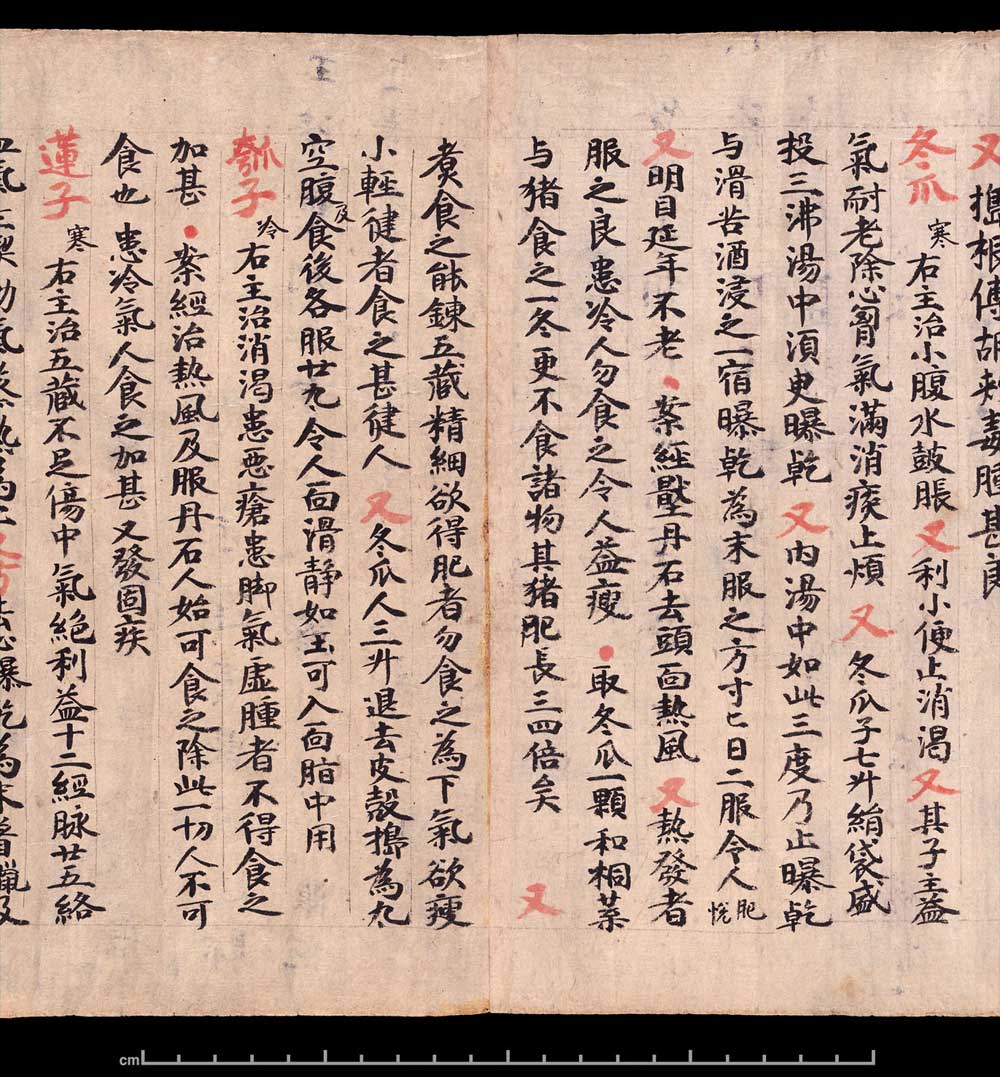 又搗根傅胡刺毒腫甚良
冬瓜寒右主治小腹水鼓脹又利小便止消渴又其子主益
氣耐老除心胷氣滿消痰止煩又冬瓜子七升絹袋盛
投三沸湯中湏臾曝乹又内湯中如此三度乃止曝乹
与清苦酒浸之一宿曝乾為末服之方寸匕日二服令人肥悅
又明目延年不老案經壓丹石去頭面熱風又熱發者
服之良患冷人勿食之令人益瘦取冬瓜一顆和桐葉
与猪食之一冬更不食諸物其猪肥長三四倍矣又
煮食之能鍊五藏精細欲得肥者勿食之為下氣欲瘦
小輕健者食之甚健人又冬瓜人三升退去皮殼搗為丸
空腹及食後各服廿丸令人面滑静如玉可入面脂中用
瓠子冷右主治消渴患惡瘡患脚氣虛腫者不得食之
加甚案經治熱風及服丹石人始可食之除此一切人不可
食也患冷氣人食之加甚又發固疾
蓮子寒右主治五藏不足傷中氣絶利益十二經脉廿五絡